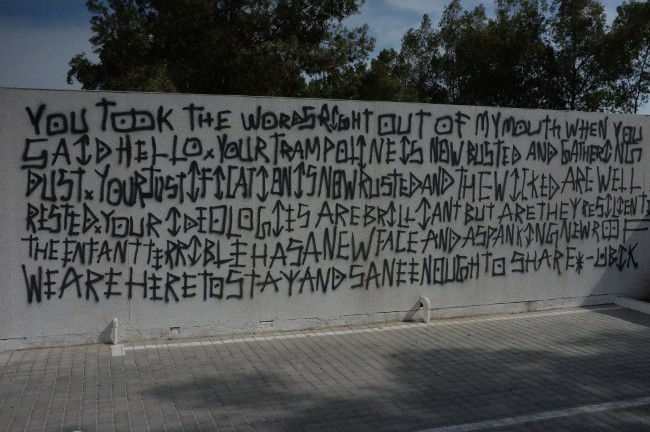 YOU TOOK THE WORDS RIGHT OUT OF MY MOUTH WHEN YOU
SAID HELLO x YOUR TRAMPOLINE IS NOW BUSTED AND GATHERING
DUST x YOUR JUSTIFICATION IS NOW RUSTED AND THE WICKED ARE WELL
RESTED x YOUR IDEOLOGIES ARE BRILLIANT BUT ARE THEY RESILIENT
THE ENTANT TERRIBLE HAS A NEW FACE AND A SPANKING NEW ROOF
WE ARE HERE TO STAY AND SANE ENOUGH TO SHARE * -UBIK